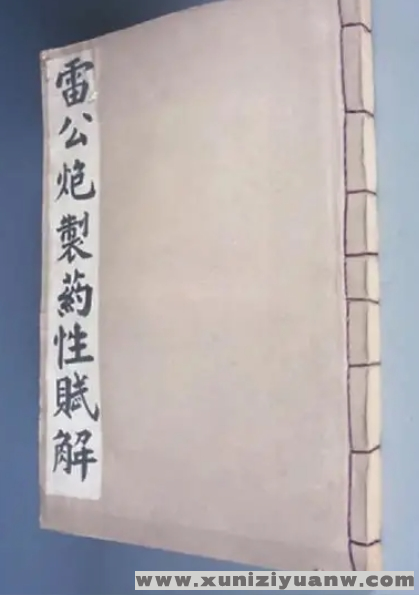 雷公炮製葯性賦解
www.xuniziyuanw.com